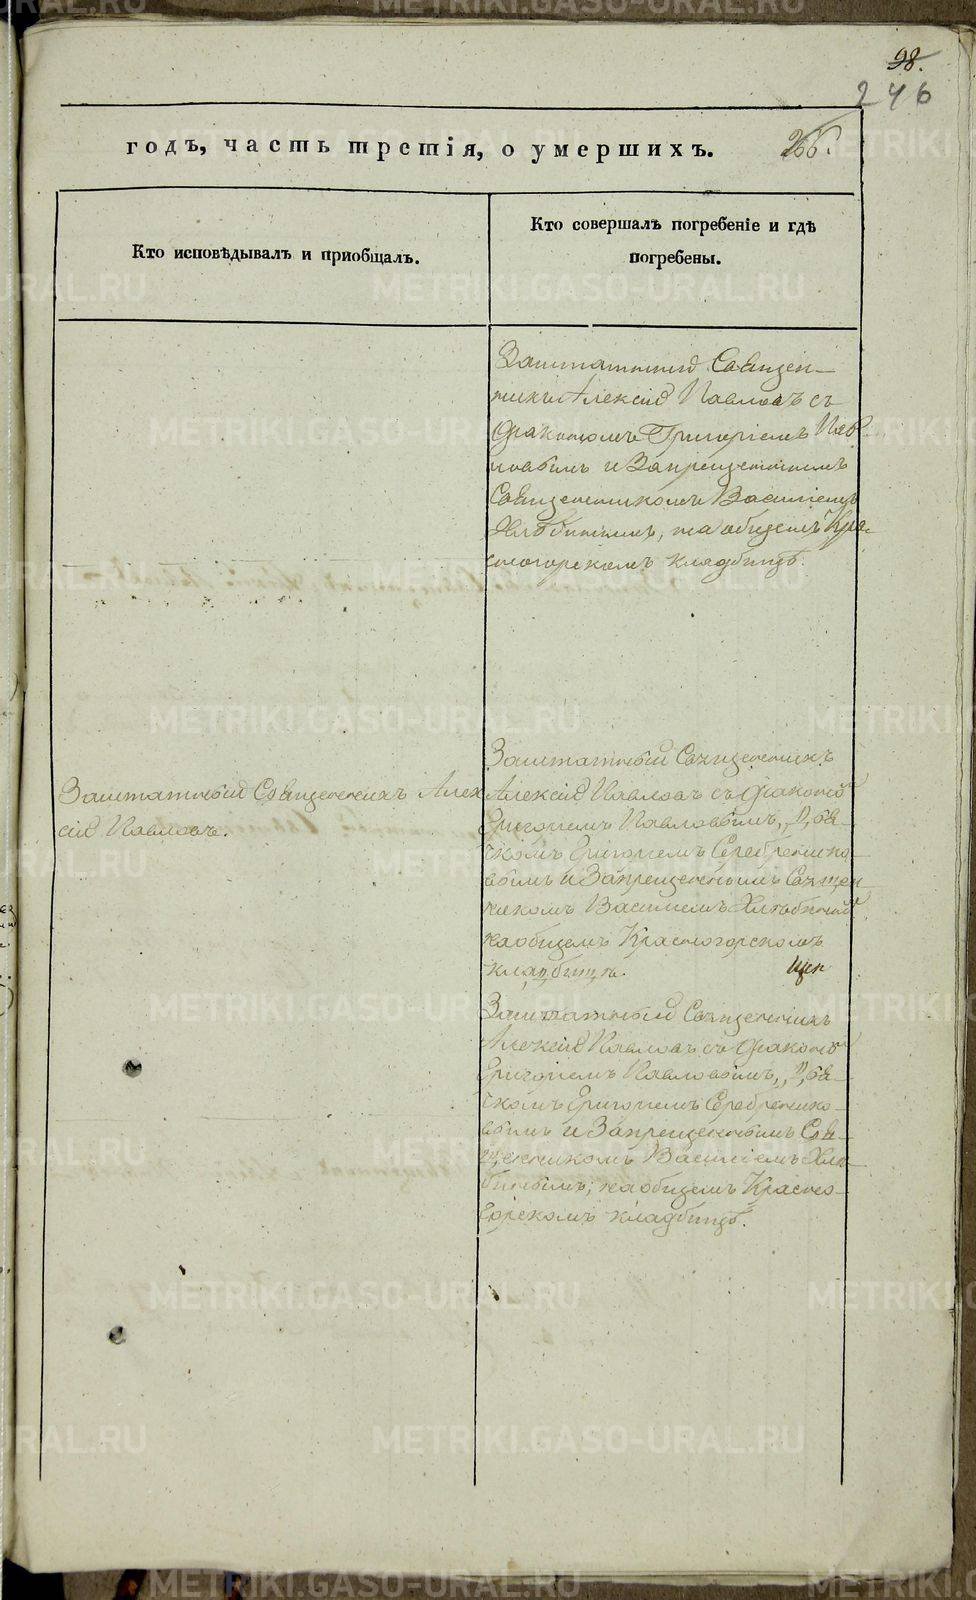 98.
246
266.
годъ, часть третія, о умершихъ.
Кто исповѣдывалъ и приобщалъ.
Кто совершалъ погребеніе и гдѣ
погребены.
Заштатный Священ-
никъ Алексій Павловъ съ
Діакономъ Григоріемъ Пав-
ловымъ и Запрещеннымъ
Священникомъ Василіемъ
Хлѣбинымъ, на общемъ Кра-
сногорскомъ кладбищѣ.
Заштатный Священникъ Алек
сій Павловъ.
Заштатный Священникъ
Алексій Павловъ съ Діаконо
Григоріемъ Павловымъ, Дьяч
комъ Григоріемъ Серебренико-
вымъ и Запрещеннымъ Священ
никомъ Василіемъ
на общемъ Красногорскомъ
кладбищѣ.
Заштатный Священникъ
Алексій Павловъ съ Діаконо
Григоріемъ Павловымъ, Дьяч
комъ Григоріемъ Серебренико-
вымъ и Запрещеннымъ Свя-
щенникомъ Василіемъ Хлѣ-
бинымъ, на общемъ Красно-
горскомъ кладбищѣ.
METRIKI.GASO-URAL.RU